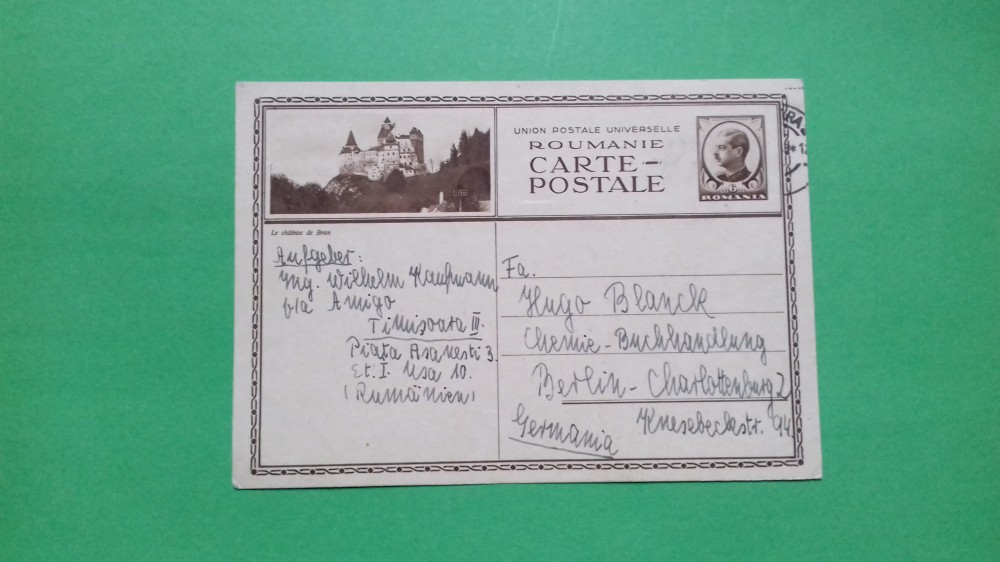 UNION POSTALE UNIVERSELLE
ROUMANIE
CARTE-
POSTALE
6
ROMANIA
Le château de Bran
Aufgeber:
Ing. Wilhelm Kaufmann
b/a Amigo
Timișoara III.
Piața Asanesti 3.
Et. I. Usa 10.
(Rumänien)
Fa.
Hugo Blanck
Chemie-Buchhandlung
Berlin-Charlottenburg 2
Knesebeckstr. 94
Germania